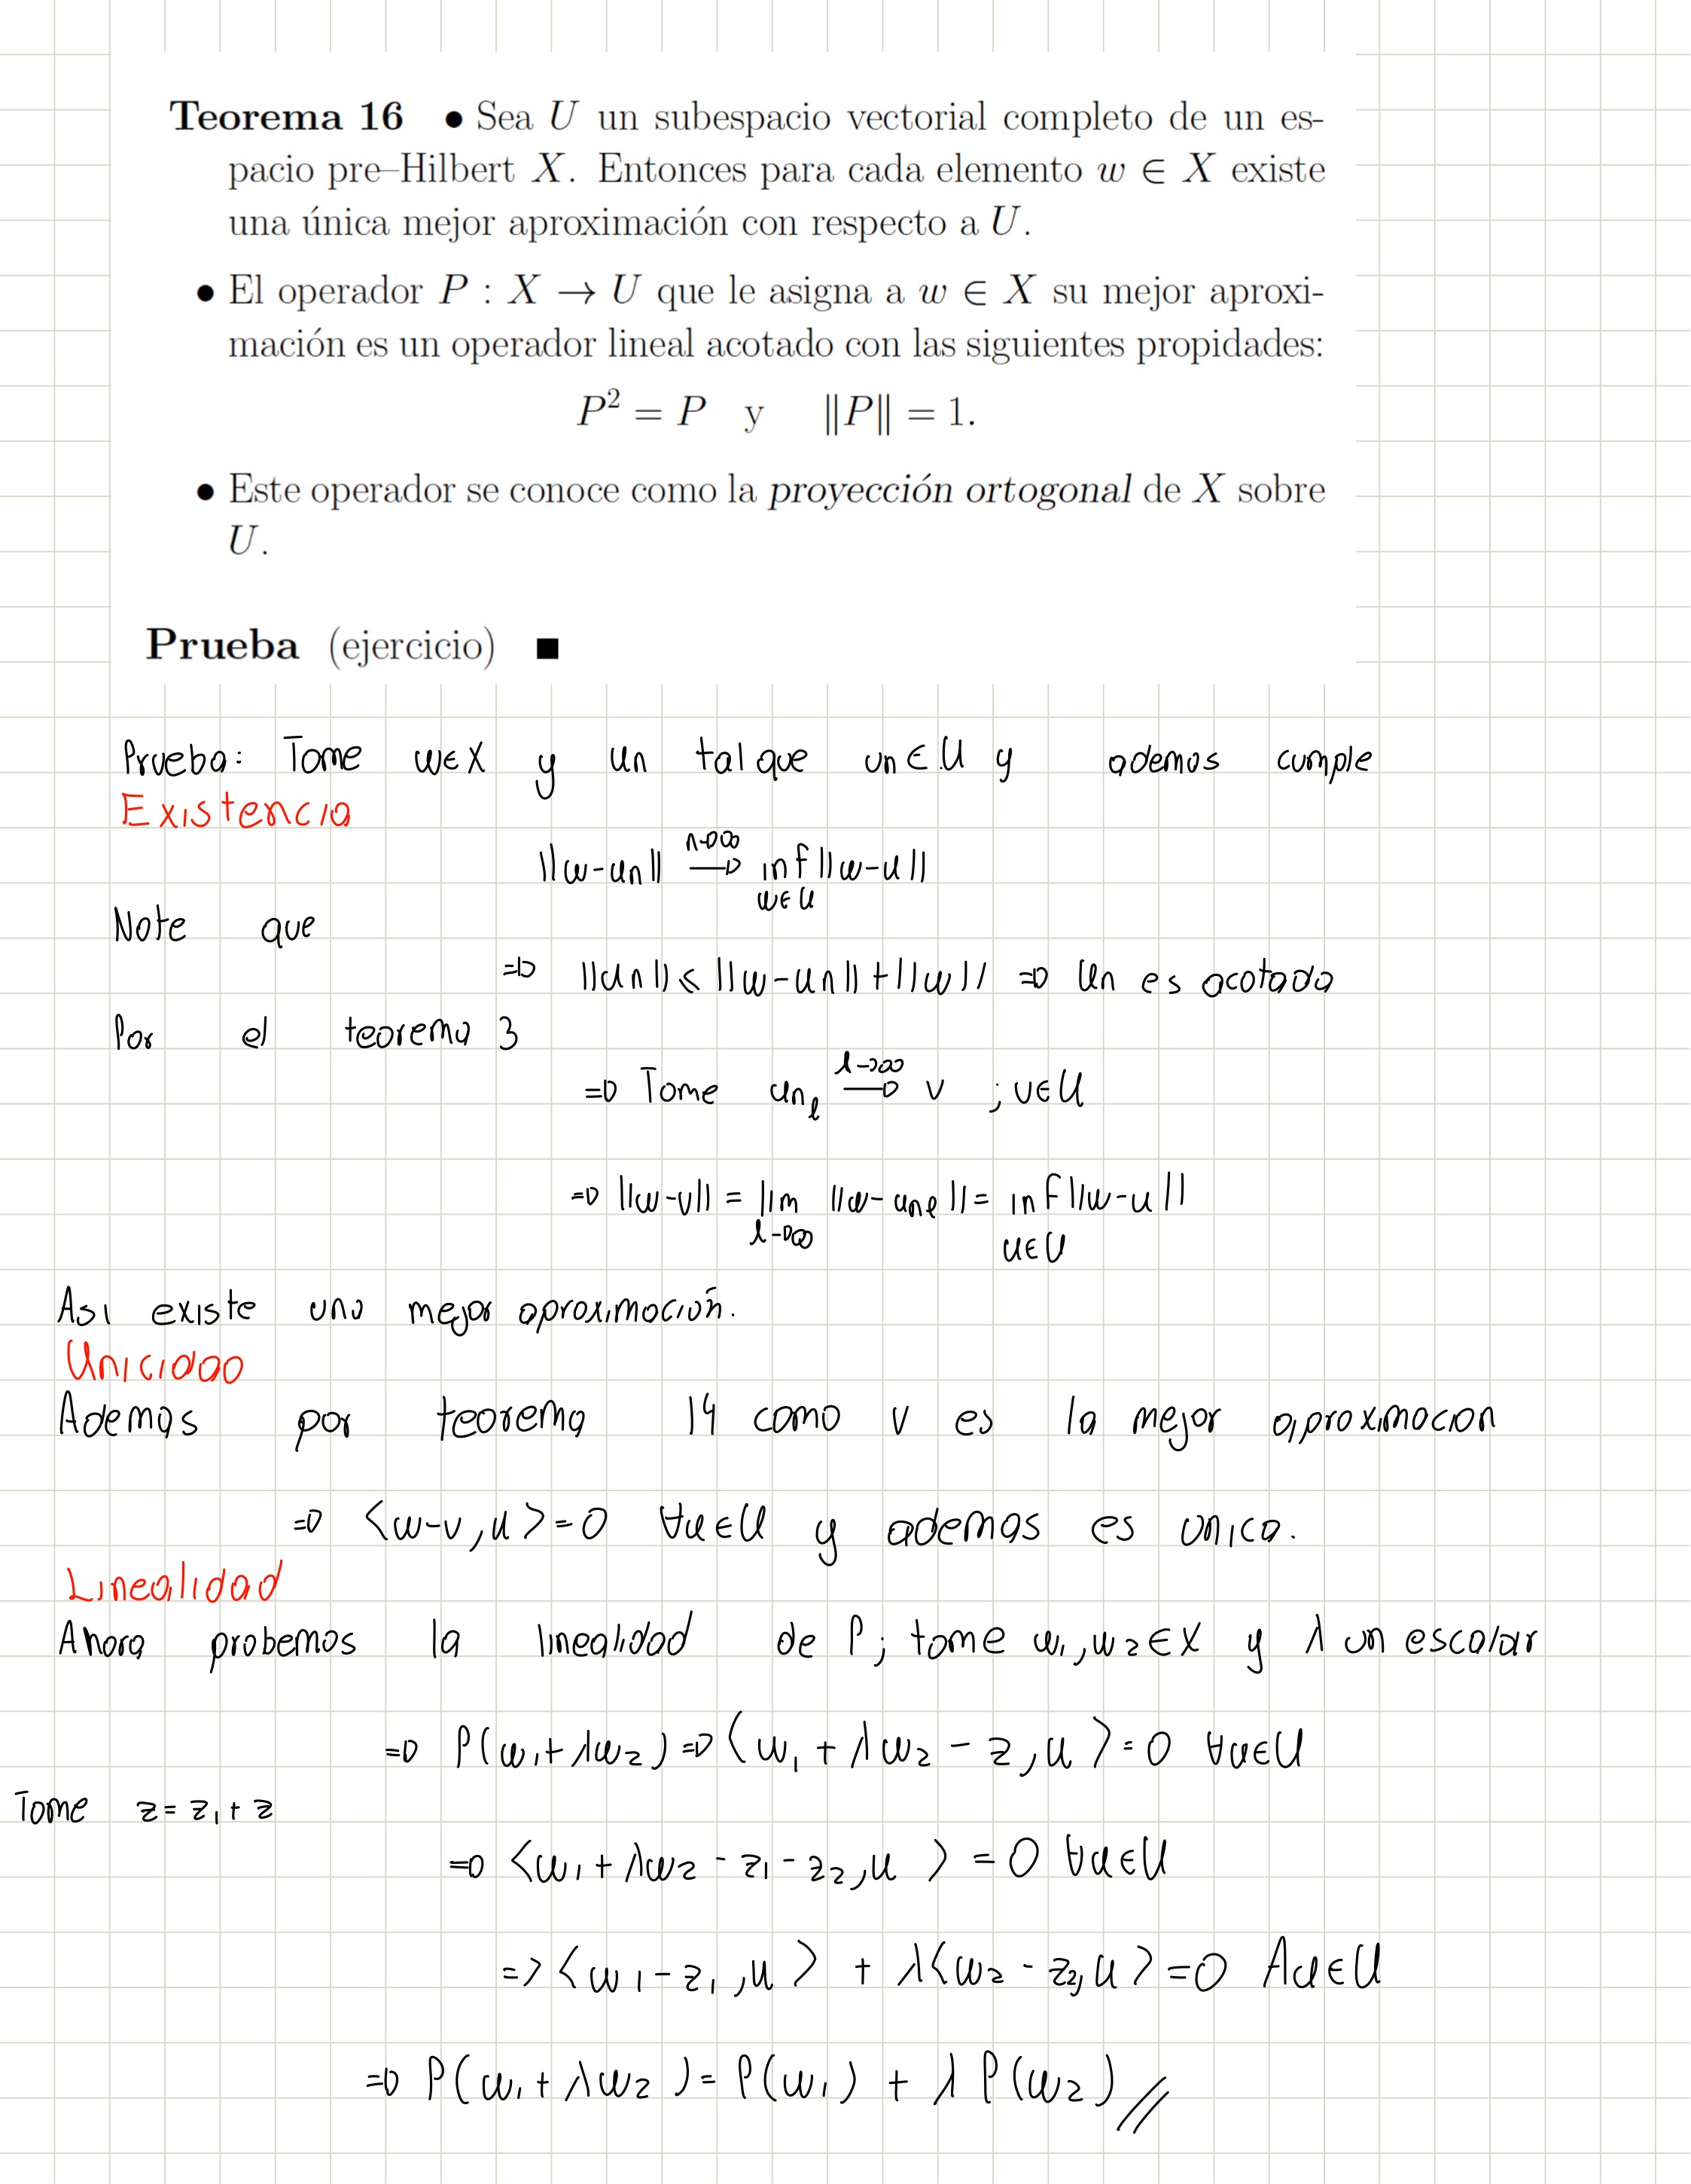 Teorema 16 • Sea U un subespacio vectorial completo de un es-
pacio pre–Hilbert X. Entonces para cada elemento w ∈ X existe
una única mejor aproximación con respecto a U.
• El operador P : X → U que le asigna a w ∈ X su mejor aproxi-
mación es un operador lineal acotado con las siguientes propidades:
P² = P y ‖P‖ = 1.
• Este operador se conoce como la proyección ortogonal de X sobre
U.
Prueba (ejercicio) ■
Prueba: Tome w∈X y un tal que un∈U y ademas cumple
Existencia
||w-un|| → inf ||w-u||
n→∞ w∈U
Note que
=> ||un|| ≤ ||w-un|| + ||w|| => un es acotada
Por el teorema 3
=> Tome un_l → v ; v∈U
l→∞
=> ||w-v|| = lim ||w-un_l || = inf ||w-u||
l→∞ u∈U
Asi existe una mejor aproximación.
Unicidad
Ademas por teorema 14 como v es la mejor aproximacion
=> <w-v,u>=0 ∀u∈U y ademas es unica.
Linealidad
Ahora probemos la linealidad de P; tome w₁,w₂∈X y λ un escalar
=> P(w₁+λw₂) => <w₁+λw₂-z,u>=0 ∀u∈U
Tome z=z₁+z
=> <w₁+λw₂-z₁-z₂,u> = 0 ∀u∈U
=> <w₁-z₁,u> + λ<w₂-z₂,u>=0 ∀u∈U
=> P(w₁+λw₂)= P(w₁) + λ P(w₂)//